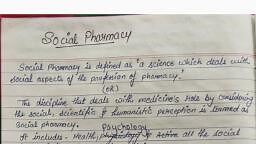 Social Pharmacy
Social Pharmacy is defined as 'a science which deals with
social aspects of the profession of pharmacy.'
(OR)
The discipline that deals with medicine's role by considering
the social, scientific & humanistic perception is termed as
social pharmacy.
Psychology
It includes - Health, all the social